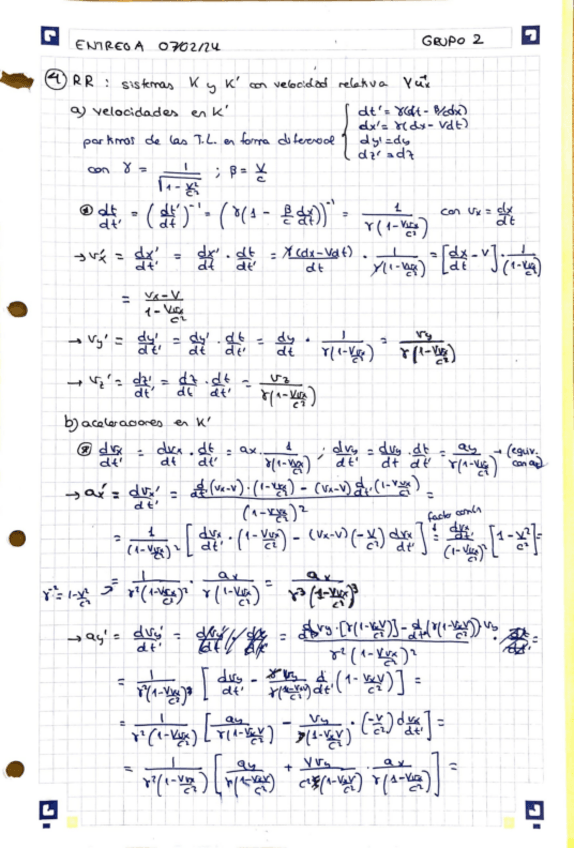 ENTREGA 07/02/24 GRUPO 2
④ RR : sistemas K y K' con velocidad relativa V u⃗x
a) velocidades en K'
partimos de las T.L. en forma diferencial { dt' = γ(dt - β/c dx)
dx' = γ(dx - Vdt)
dy' = dy
dz' = dz
con γ = 1/√(1 - V²/c²) ; β = V/c
dt/dt' = (dt'/dt)⁻¹ = (γ(1 - β/c dx/dt))⁻¹ = 1/γ(1 - Vvx/c²) con vx = dx/dt
→ vx' = dx'/dt' = dx'/dt · dt/dt' = γ(dx - Vdt)/dt · 1/γ(1 - Vvx/c²) = [dx/dt - V] · 1/(1 - Vvx/c²)
= (vx - V)/(1 - Vvx/c²)
→ vy' = dy'/dt' = dy'/dt · dt/dt' = dy/dt · 1/γ(1 - Vvx/c²) = vy/γ(1 - Vvx/c²)
→ vz' = dz'/dt' = dz/dt · dt/dt' = vz/γ(1 - Vvx/c²)
b) aceleraciones en K'
dvx/dt' = dvx/dt · dt/dt' = ax · 1/γ(1 - Vvx/c²) ; dvy/dt' = dvy/dt · dt/dt' = ay/γ(1 - Vvx/c²) → (equiv. con az)
→ ax' = dvx'/dt' = [d/dt'(vx - V) · (1 - Vvx/c²) - (vx - V) d/dt'(1 - Vvx/c²)]/(1 - Vvx/c²)² =
factor común
= 1/(1 - Vvx/c²)² [dvx/dt' · (1 - Vvx/c²) - (vx - V)(-V/c²) dvx/dt'] = dvx/dt'/(1 - Vvx/c²)² [1 - V²/c²] =
γ⁻² = 1 - V²/c² = 1/γ²(1 - Vvx/c²)² · ax/γ(1 - Vvx/c²) = ax/γ³(1 - Vvx/c²)³
→ ay' = dvy'/dt' = = [d/dt' vy · [γ(1 - VxV/c²)] - d/dt'(γ(1 - VxV/c²)) vy]/γ²(1 - Vvx/c²)² =
= 1/γ²(1 - Vvx/c²) [dvy/dt' - γvy/γ(1 - VxV/c²) d/dt'(1 - VxV/c²)] =
= 1/γ²(1 - Vvx/c²) [ay/γ(1 - VxV/c²) - vy/(1 - VxV/c²) · (-V/c²) dvx/dt'] =
= 1/γ²(1 - Vvx/c²) [ay/γ(1 - VxV/c²) + Vvy/c²(1 - VxV/c²) · ax/γ(1 - Vvx/c²)] =